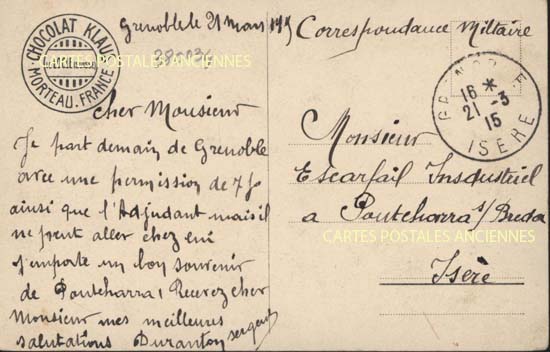 CHOCOLAT KLAUS
MORTEAU. FRANCE
Grenoble le 21 mars 1915
38-034
Correspondance Militaire
GRENOBLE
16 *
21 - 3
15
ISÈRE
cher Monsieur
Je part demain de Grenoble
avec une permission de 7 jo
ainsi que l'Adjudant mais il
ne peut aller chez eui
j'emporte un bon souvenir
de Pontcharra, Recevez cher
Monsieur mes meilleures
salutations Duranton sergent
Monsieur
Escarfail Insdustriel
a Pontcharra s/ Breda
Isère
CARTES POSTALES ANCIENNES
CARTES POSTALES ANCIENNES